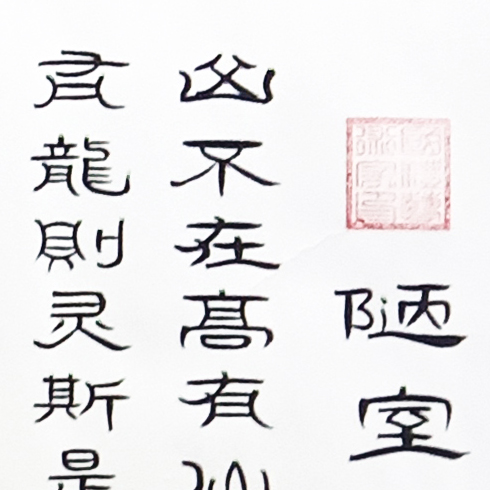 陋室
山不在高有
有龍則灵斯是